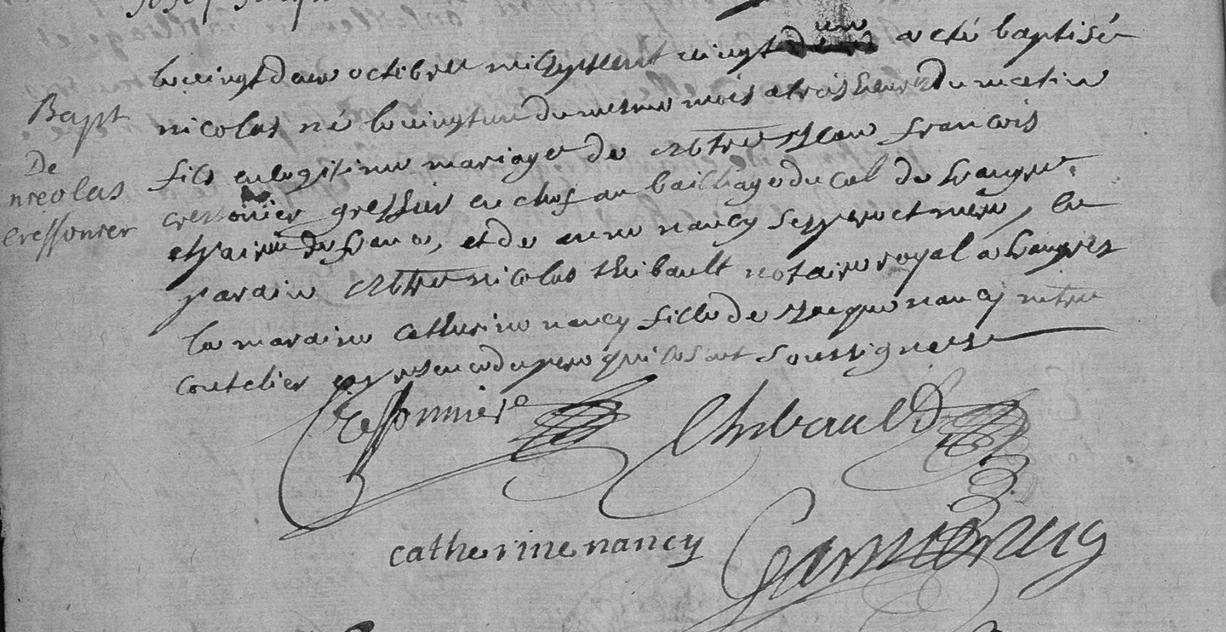 Bapt
De
nicolas
cressonier
le vingt deux octobre mil sept cent vingt un a eté baptisé
nicolas né le vingt un du mesme mois a trois heures du matin
fils en legitime mariage de Mtre Jean françois
cressonier greffier en chef au bailliage du de Langres
et de anne nancy ses pere et mere, le
parain Mtre nicolas thibault notaire royal a Langres
la maraine catherine nancy fille de Jacque nancy mtre
coutelier en presence du pere qui se sont soussignees
Cressonnier
Thibault
catherine nancy